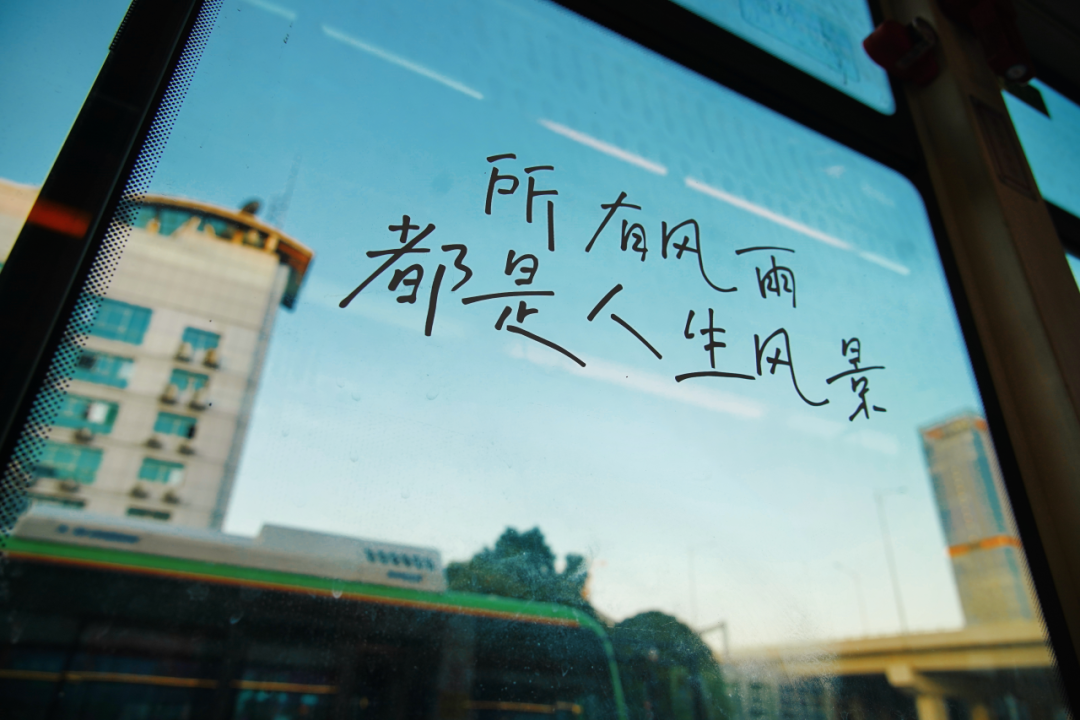 所有风雨
都是人生风景